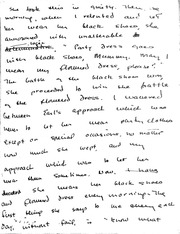 She kept this in quietly. Then, one
morning, when I relented and let
her wear her black shoes she
announced with unalterable
logic, "Party dress goes
with black shoes, Mummy. May I
wear my flowered dress please."
The battle of the black shoes won
she proceeded to win the battle
of the flowered dress. I wavered
between Earl's approach which was
never to let her wear party clothes
except on special occasions, no matter
how much she wept, and my
approach which was to let her
wear them sometimes. Now,
she wears her black shoes
and flowered dress every morning. The
first thing she says to me each
day, without fail, is "Know what